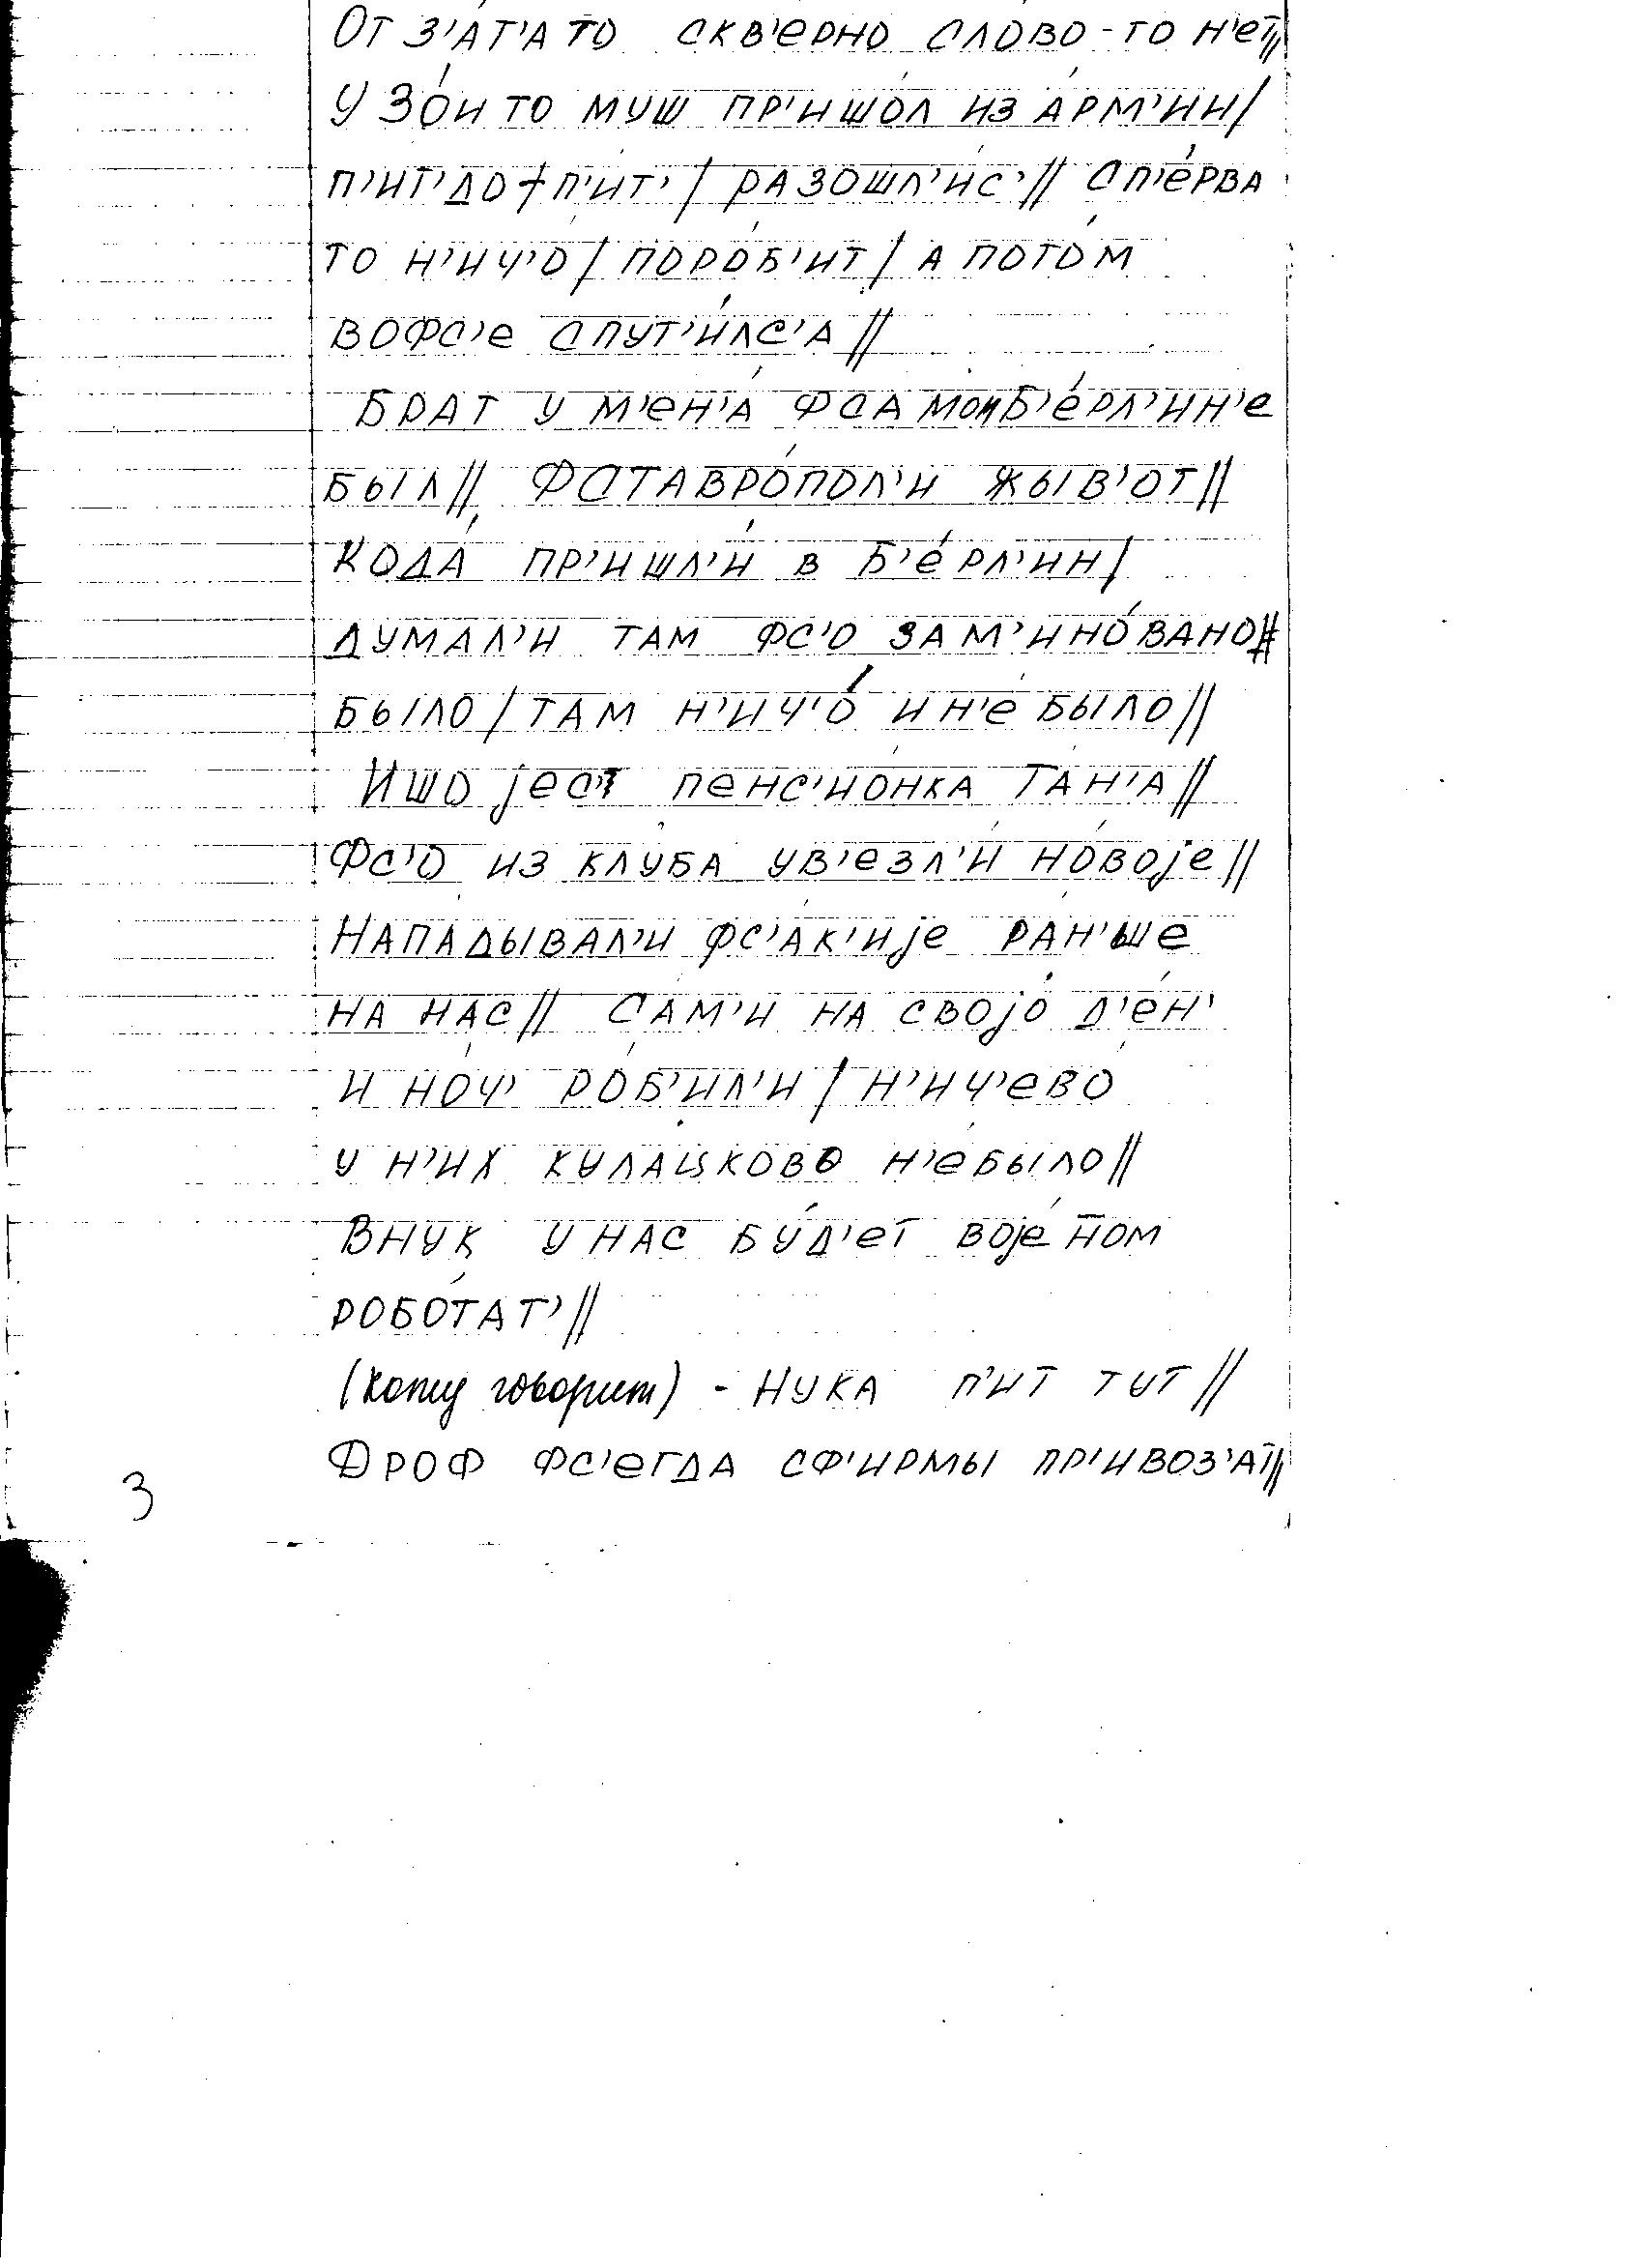 От з'ат'а то скв'ерно слово-то н'ет//
У Зо́и то муш пр'ишо́л из а́рм'ии/
п'ит' до п'ит'/ разошл'и́с'// Сп'е́рва
то н'ич'о/ поро́б'ит/ а пото́м
вофс'е спут'и́лс'а//
Брат у м'ен'а́ фсамом Б'е́рл'ин'е
был// Фставро́пол'и жыв'от//
Кода́ пр'ишл'и́ в Б'е́рл'ин/
думал'и там фс'о зам'ино́вано
было/ там н'ич'о́ и н'е было//
Ишо јест пенс'ио́нка Та́н'а//
Фс'о из клуба ув'езл'и́ но́воје//
Напа́дывал'и фс'а́к'ије ран'ше
на нас// Са́м'и на својо́ д'е́н'
и но́ч' ро́б'ил'и/ н'ич'ево
у н'их кулацково н'е было//
Внук у нас бу́д'ет војен̄ом
робо́тат'//
(коту говорит) - Нука п'ит тут//
Дроф фс'егда сф'ирмы пр'ивоз'ат//
3